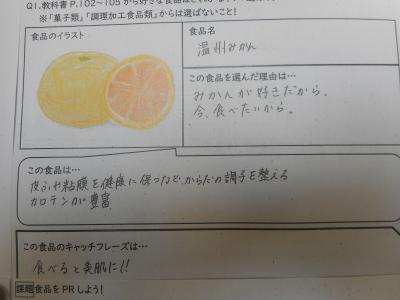 Q1.教科書P.102~105から好きな食品は
※「菓子類」「調理加工食品類」からは選ばないこと!
食品のイラスト
食品名
温州みかん
この食品を選んだ理由は…
みかんが好きだから。
今、食べたいから。
この食品は…
皮ふや粘膜を健康に保つなど、からだの調子を整える
カロテンが豊富
この食品のキャッチフレーズは…
食べると美肌に!!
課題 食品をPRしよう!